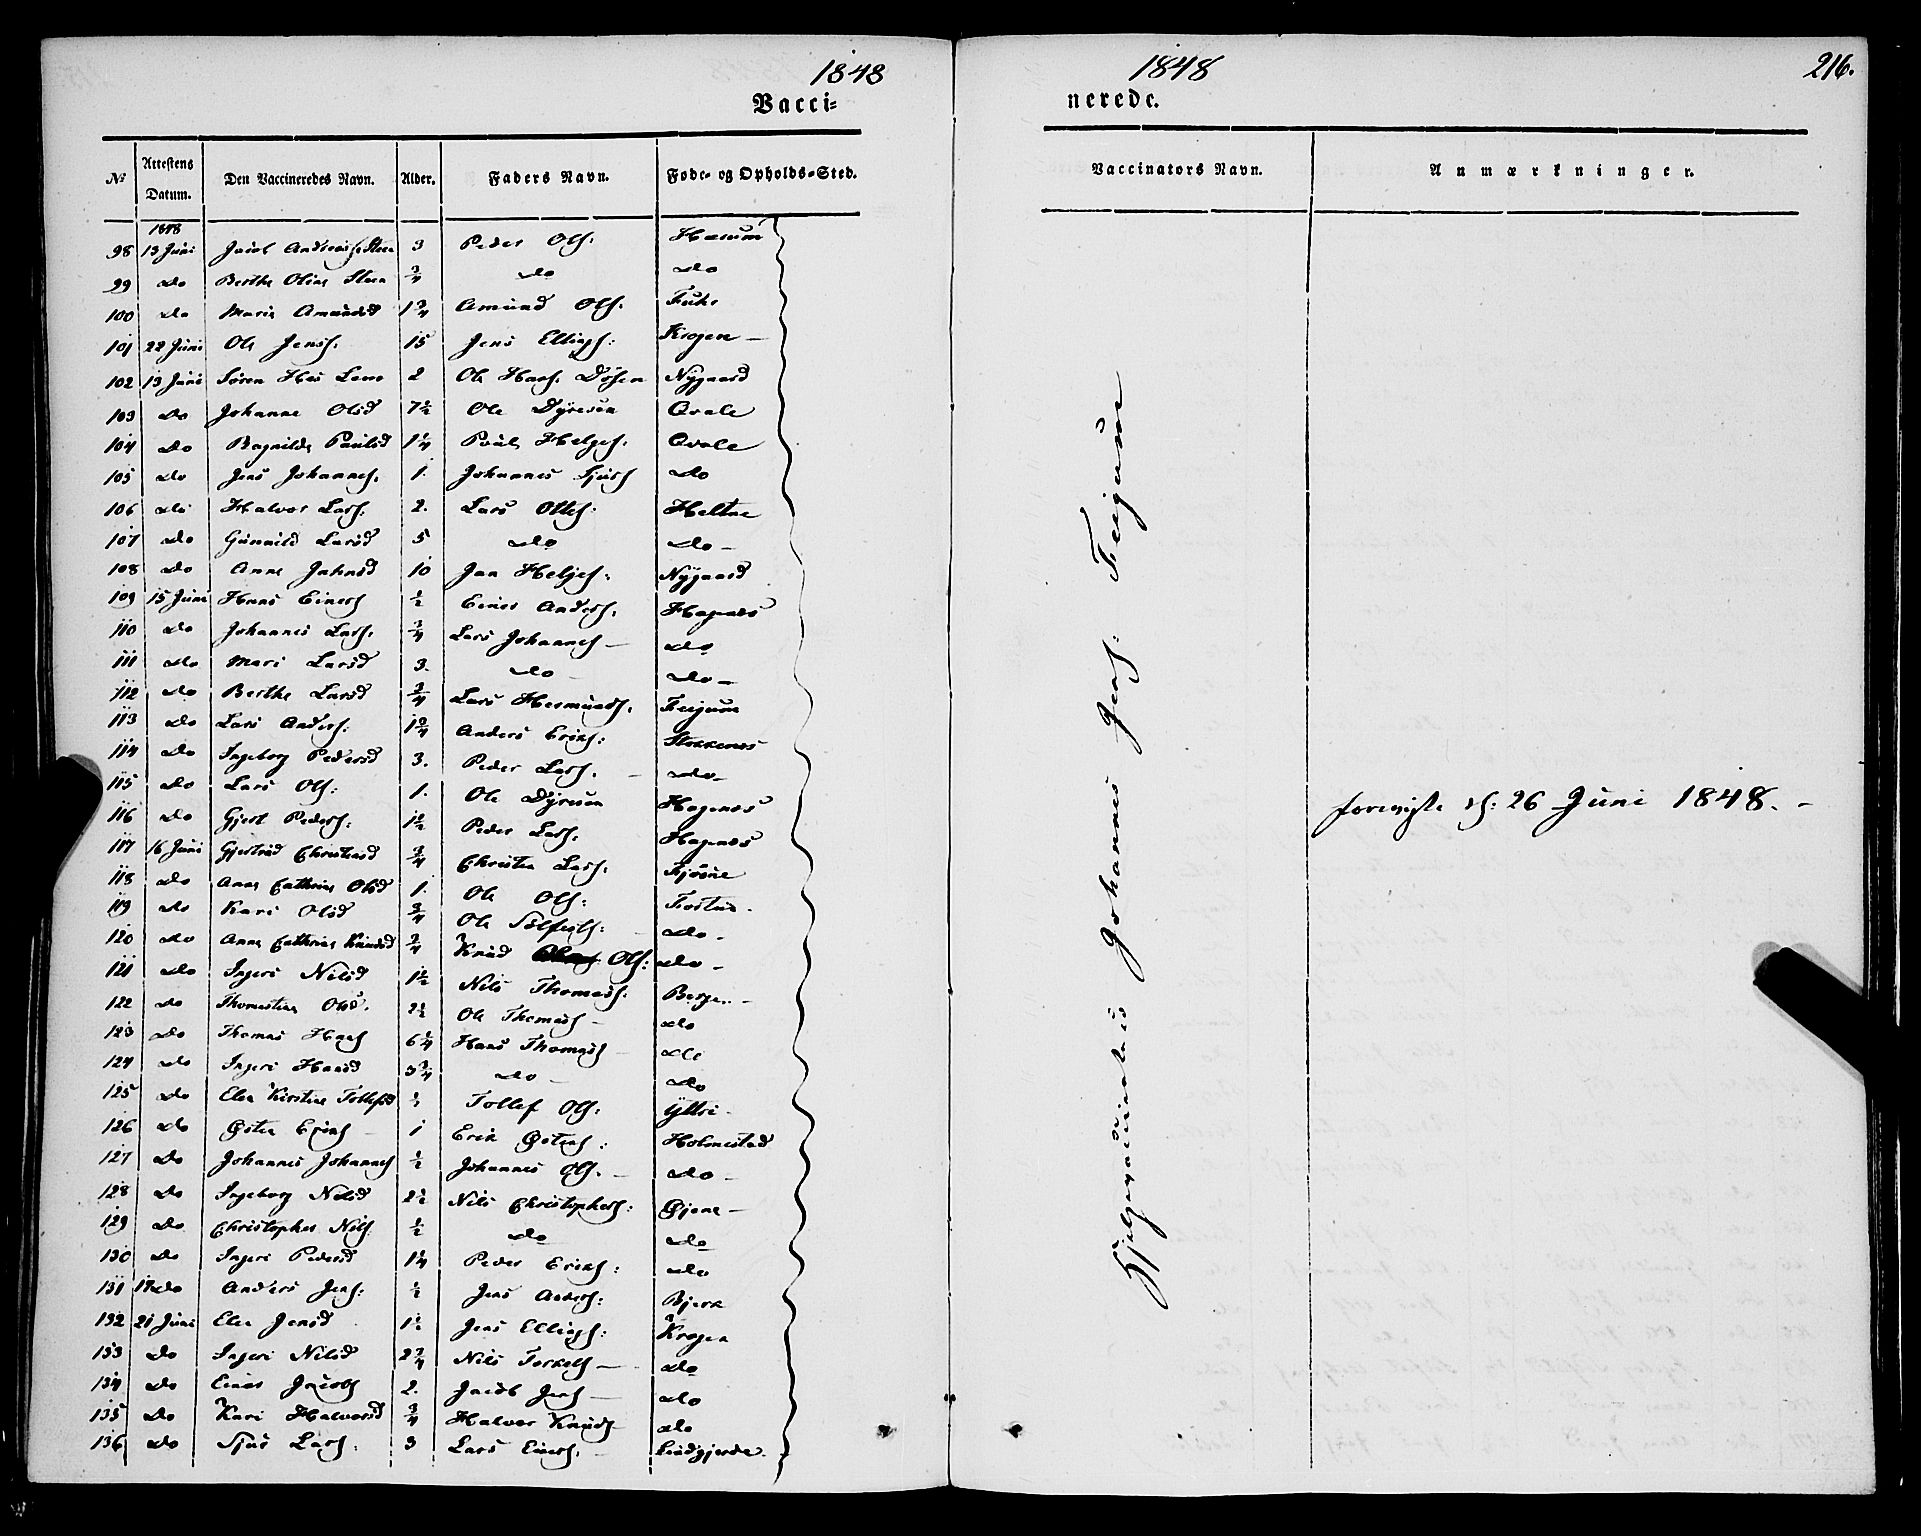 1848
Vacci-
No Attestens Datum. Den Vaccineredes Navn. Alder. Faders Navn. Føde- og Opholds-Sted.
1848
98 13 Juni Jacob Andreas Steen 3 Peder Ols: Hæsum
99 do Berthe Oline Steen 3/4 do do
100 do Marie Amundsd 1 3/4 Amund Ols: Fuhr
101 22 Juni Ole Jens: 15 Jens Ellings: Krogen
102 13 Juni Søren Hes Lem 2 Ole Hans: Døsen Nygaard
103 do Johanne Olsd 7 1/2 Ole Dyresen Qvale
104 do Ragnilde Paulsd 1 1/4 Poul Helges: Qvale
105 do Jens Johannes: 1. Johannes Sjurs do
106 do Halvor Lars: 2. Lars Olles: Heltne
107 do Gunnild Larsd 5 do do
108 do Anne Jahnsd 10 Jan Helges: Nygaard
109 15 Juni Hans Einers 1/2 Einer Anders: Hagenæs
110 do Johannes Lars: 3/4 Lars Johannes do
111 do Mari Larsd 3. do do
112 do Berthe Larsd 3/4 Lars Hermunds: Feigum
113 do Lars Anders: 1 3/4 Anders Eriks: Stokkenæs
114 do Ingeborg Pedersd 3. Peder Lars: do
115 do Lars Ols: 1. Ole Dyresen Hagenæs
116 do Gjert Peders: 1 1/2 Peder Lars: Hagenæs
117 16 Juni Gjertrud Christensd 3/4 Christen Lars: Kjørne
118 do Anne Cathrine Olsd 1. Ole Ols: Tostne.
119 do Kari Olsd 3/4 Ole Solfests: do
120 do Anne Cathrine Knudsd 3/4 Knud Ols: do
121 do Ingeri Nilsd 1 1/2 Nils Thomass: Berge
122 do Thomastine Olsd. 2 1/2 Ole Thomass do
123 do Thomas Hans 6 1/4 Hans Thomass do
124 do Ingeri Hansd 3 3/4 do do
125 do Elen Kirstine Tollefsd 1/2 Tollef Ols: Yttri
126 do Østen Eriks 1 Erik Østens: Holmestad
127 do Johannes Johannes 1/2 Johannes Ols. do
128 do Ingeborg Nilsd 2 1/2 Nils Christophers: Øjene
129 do Christopher Nils 1/2 do do
130 do Ingeri Pedersd 1 1/4 Peder Eriks: do
131 17 do Anders Jens: 1/2 Jens Anders: Bjerk
132 21 Juni Elen Jensd 1 1/2 Jens Ellings: Krogen
133 do Ingeri Nilsd 2 3/4 Nils Torkels do
134 do Einer Jacobs 2. Jacob Jens do
135 do Kari Halvorsd 3/4 Halvor Knuds do
136 do Sjur Lars: 3 Lars Einers: Lindgjerde.
1848
216.
nerede.
Vaccinators Navn. Anmærkninger.
Hjelpevaccinateur Johannes Jens: Feigum
foreviiste d: 26 Juni 1848.